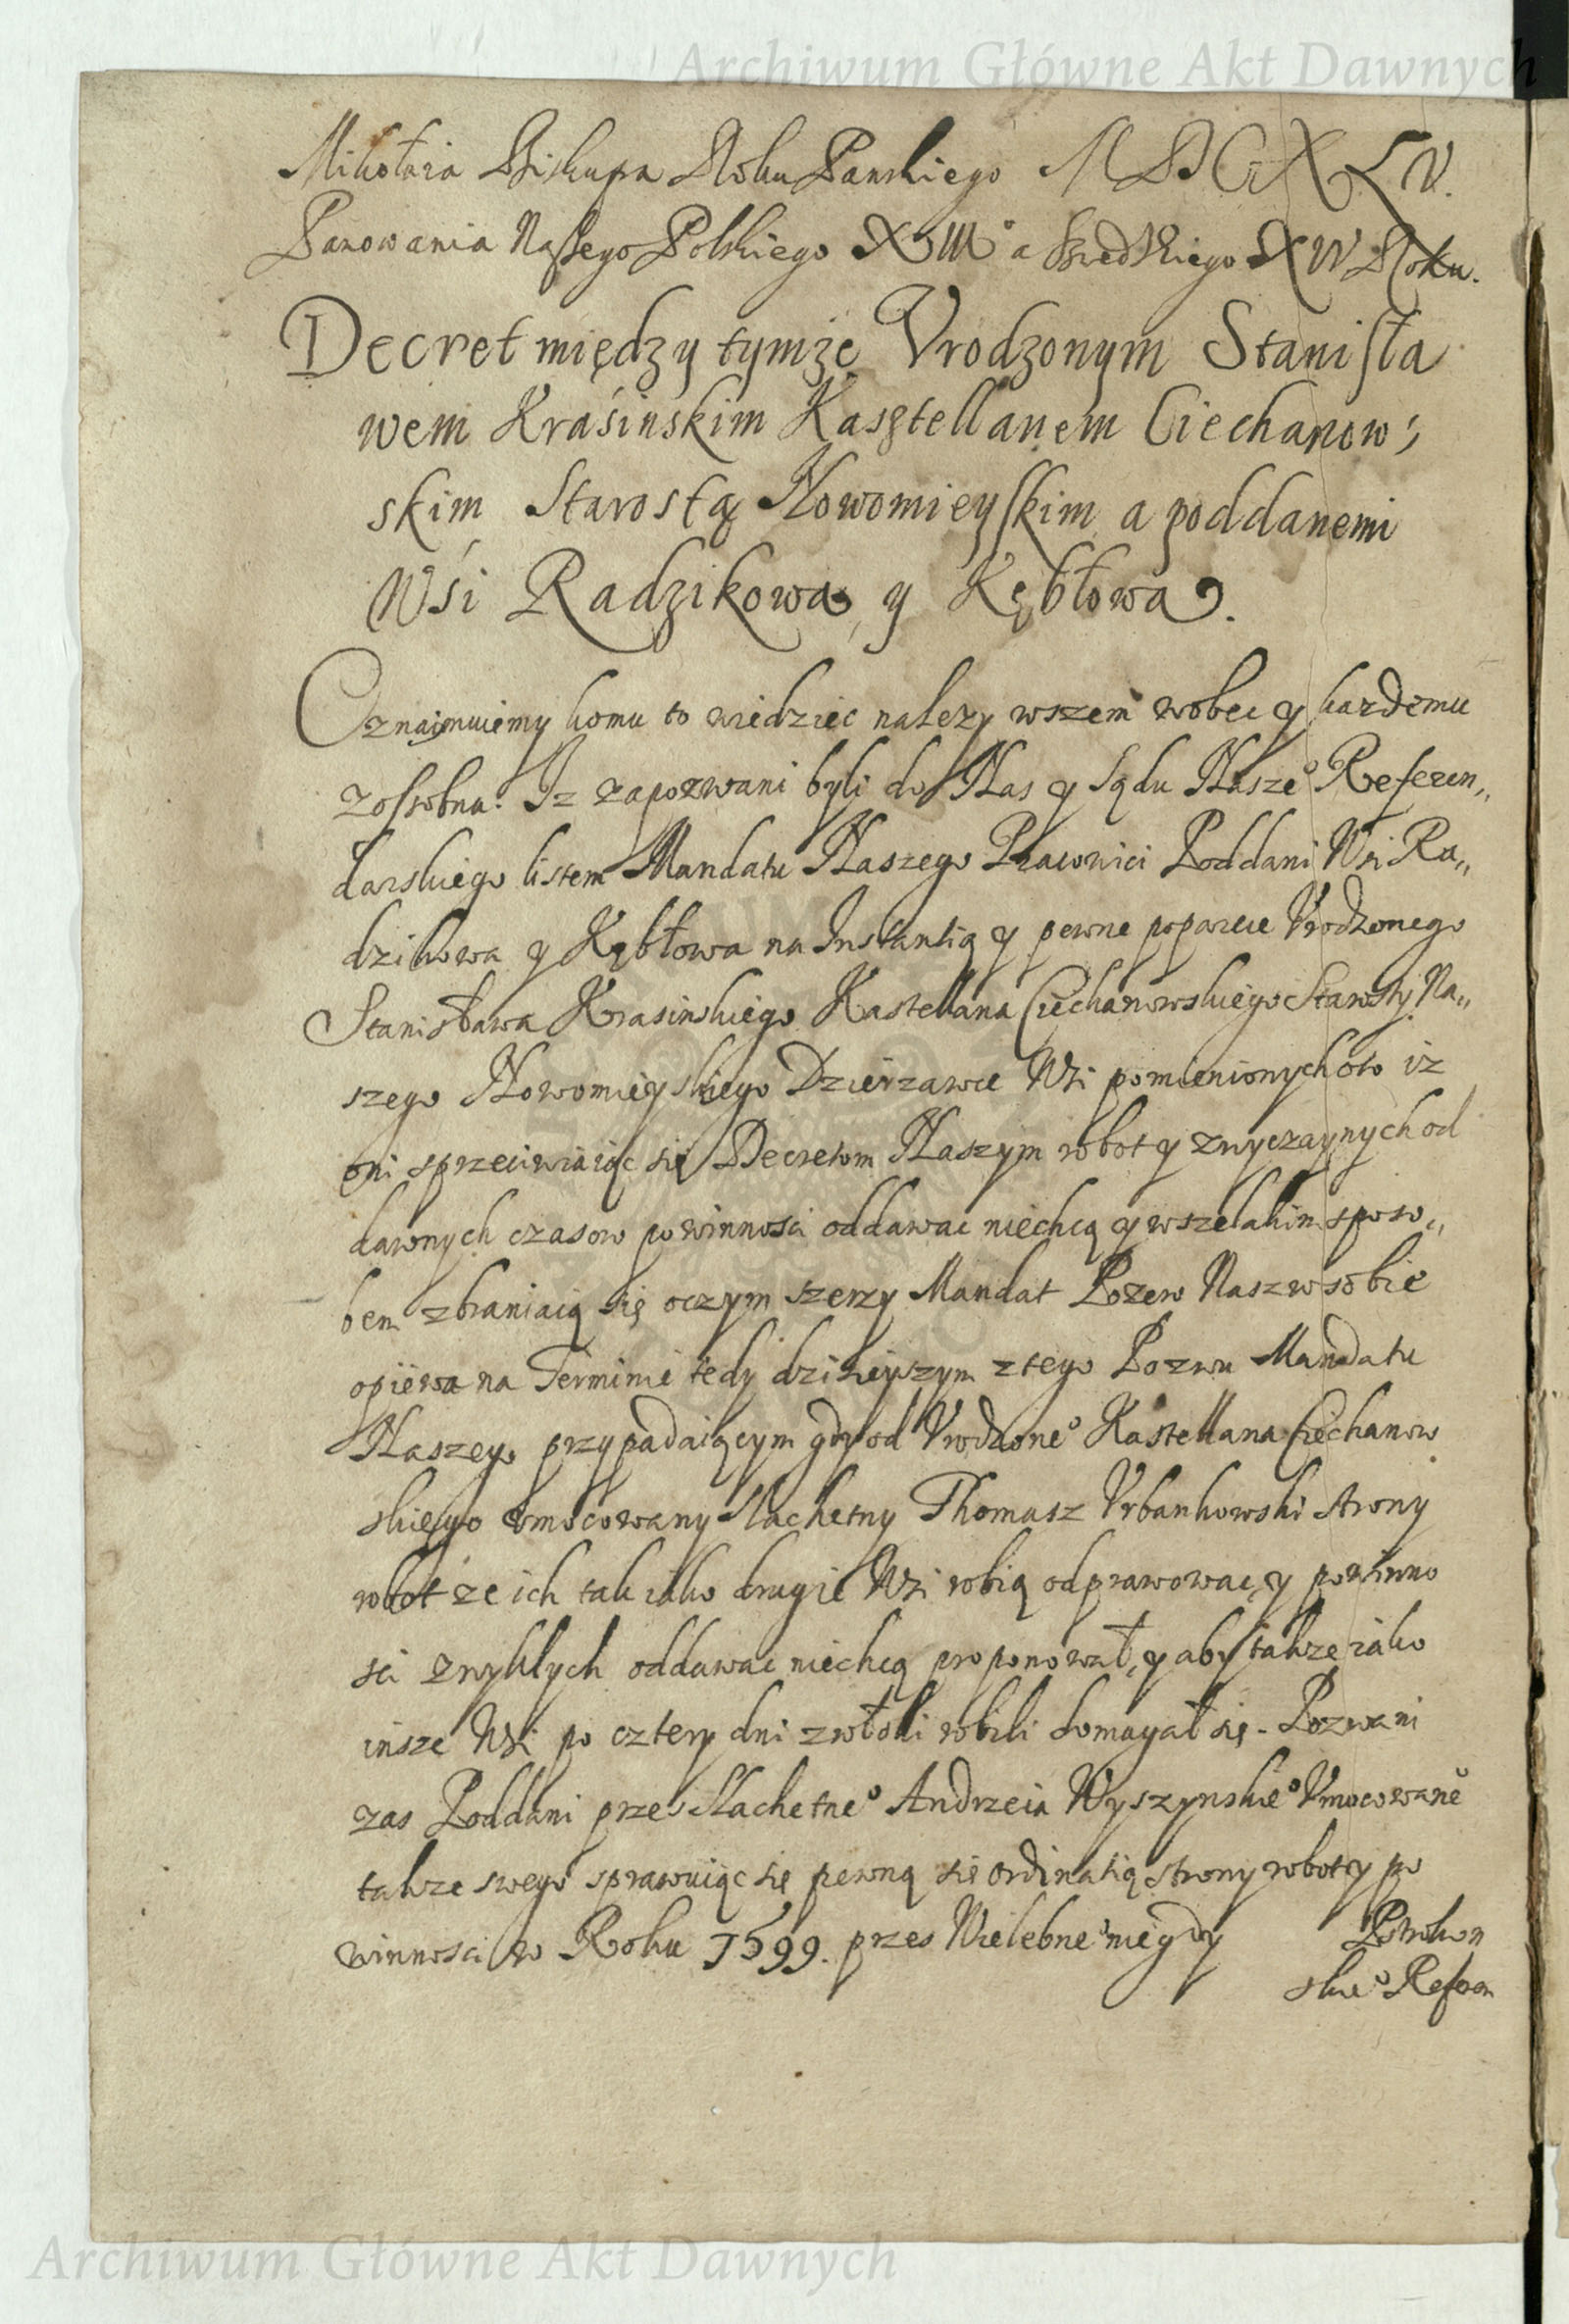 Archiwum Główne Akt Dawnych
Mikołaia Biskupa Roku Panskiego M D C X L V.
Panowania Naszego Polskiego XIII° a Szwedzkiego XIV Roku.
Decret między tymże Vrodzonym Stanisła
wem Kraśinskim Kasztellanem Ciechanow;
skim Starostą Nowomieyskim a poddanemi
Wśi Radzikowa y Kębłowa.
Oznaymuiemy komu to wiedziec nalezy wszem wobec y kazdemu
zossobna. Iz zapozwani byli do Nas y Sądu Nasze° Referen„
darskiego listem Mandatu Naszego Pracowici Poddani Wsi Ra„
dzikowa y Kębłowa na Instantią y pewne poparcie Vrodzonego
Stanisława Krasinskiego Kastellana Ciechanowskiego Starosty Na„
szego Nowomieyskiego Dzierzawce Wsi pomienionych oto iz
oni sprzeciwiaiąc się Decretom Naszym robot y zwyczaynych od
dawnych czasow powinnosci oddawac niechcą y wszelakim sposo„
bem zbraniaią się oczym szerzy Mandat Pozew Nasz wsobie
opiewa na Terminie tedy dzisieyszym z tego Pozwu Mandatu
Naszego przypadaiącym gdy od Vrodzone° Kastellana Ciechanow
skiego vmocowany Slachetny Thomasz Vrbankowski strony
robot ze ich tak iako drugie Wsi robią odprawowac, y powinno
sci zwykłych oddawac niechcą proponował, y aby takze iako
insze Wsi po cztery dni z włoki robili domagał się. Pozwani
zas Poddani przes Slachetne° Andrzeia Wyszynskie° Vmocowane°
takze swego sprawuiąc się pewną się ordinatią strony robot y po
winnosci w Roku 1599. przes Wielebne° niegdy Potrkow
skie° Referen
Archiwum Główne Akt Dawnych